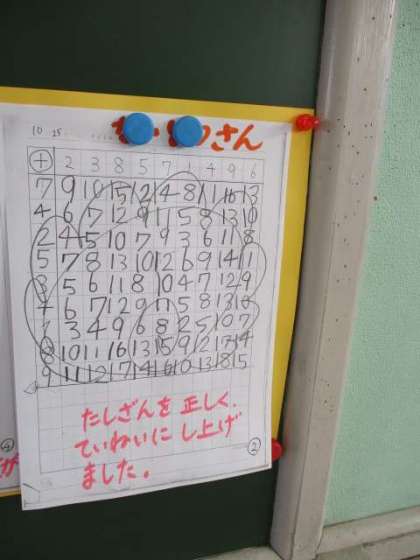 さん
10 25
+ 2 3 8 5 7 4 9 6
7 9 10 15 12 14 8 11 16 13
4 6 7 12 9 11 5 8 13 10
2 4 5 10 7 9 3 6 11 8
5 7 8 13 10 12 6 9 14 11
3 5 6 11 8 10 4 7 12 9
4 6 7 12 9 11 5 8 13 10
1 3 4 9 6 8 2 5 10 7
8 10 11 16 13 15 9 12 17 14
9 11 12 17 14 16 10 13 18 15
たしざんを 正しく、
ていねいに し上げ
ました。
②
④
が